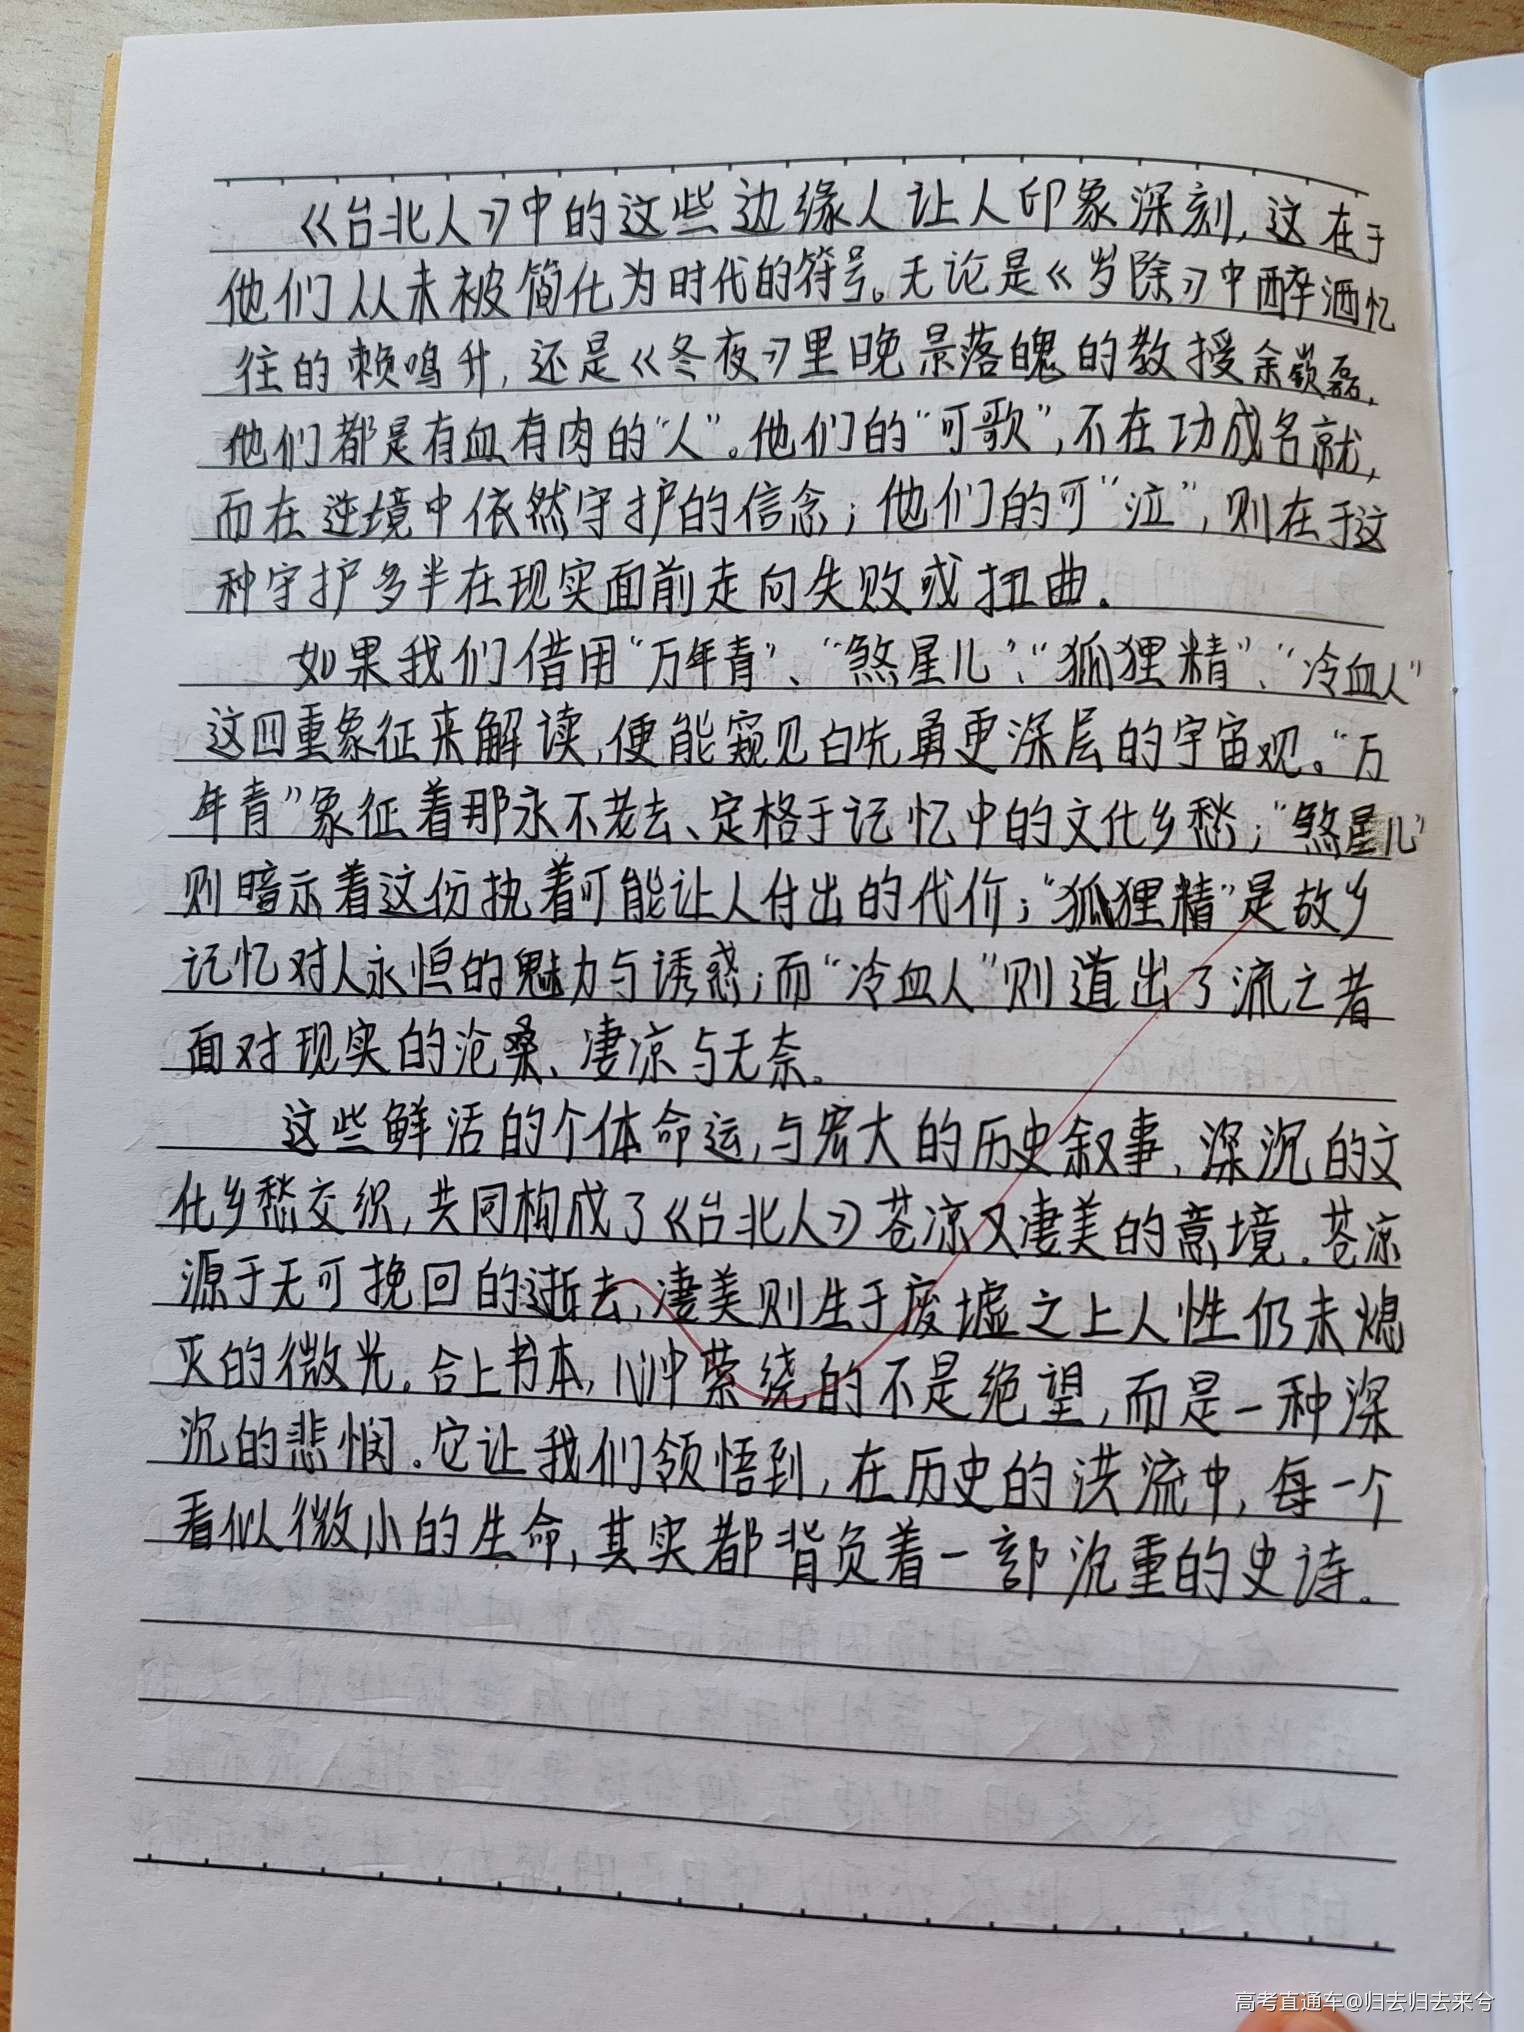 《台北人》中的这些边缘人让人印象深刻，这在于
他们从未被简化为时代的符号。无论是《岁除》中醉酒忆
往的赖鸣升，还是《冬夜》里晚景落魄的教授余嵚磊，
他们都是有血有肉的“人”。他们的“可歌”，不在功成名就，
而在逆境中依然守护的信念；他们的可“泣”，则在于这
种守护多半在现实面前走向失败或扭曲。
如果我们借用“万年青”、“煞星儿”、“狐狸精”、“冷血人”
这四重象征来解读，便能窥见白先勇更深层的宇宙观。“万
年青”象征着那永不老去、定格于记忆中的文化乡愁；“煞星儿”
则暗示着这份执着可能让人付出的代价；“狐狸精”是故乡
记忆对人永恒的魅力与诱惑；而“冷血人”则道出了流亡者
面对现实的沧桑、凄凉与无奈。
这些鲜活的个体命运，与宏大的历史叙事、深沉的文
化乡愁交织，共同构成了《台北人》苍凉又凄美的意境。苍凉
源于无可挽回的逝去，凄美则生于废墟之上人性仍未熄
灭的微光。合上书本，心中萦绕的不是绝望，而是一种深
沉的悲悯。它让我们领悟到，在历史的洪流中，每一个
看似微小的生命，其实都背负着一部沉重的史诗。
高考直通车@归去归去来兮